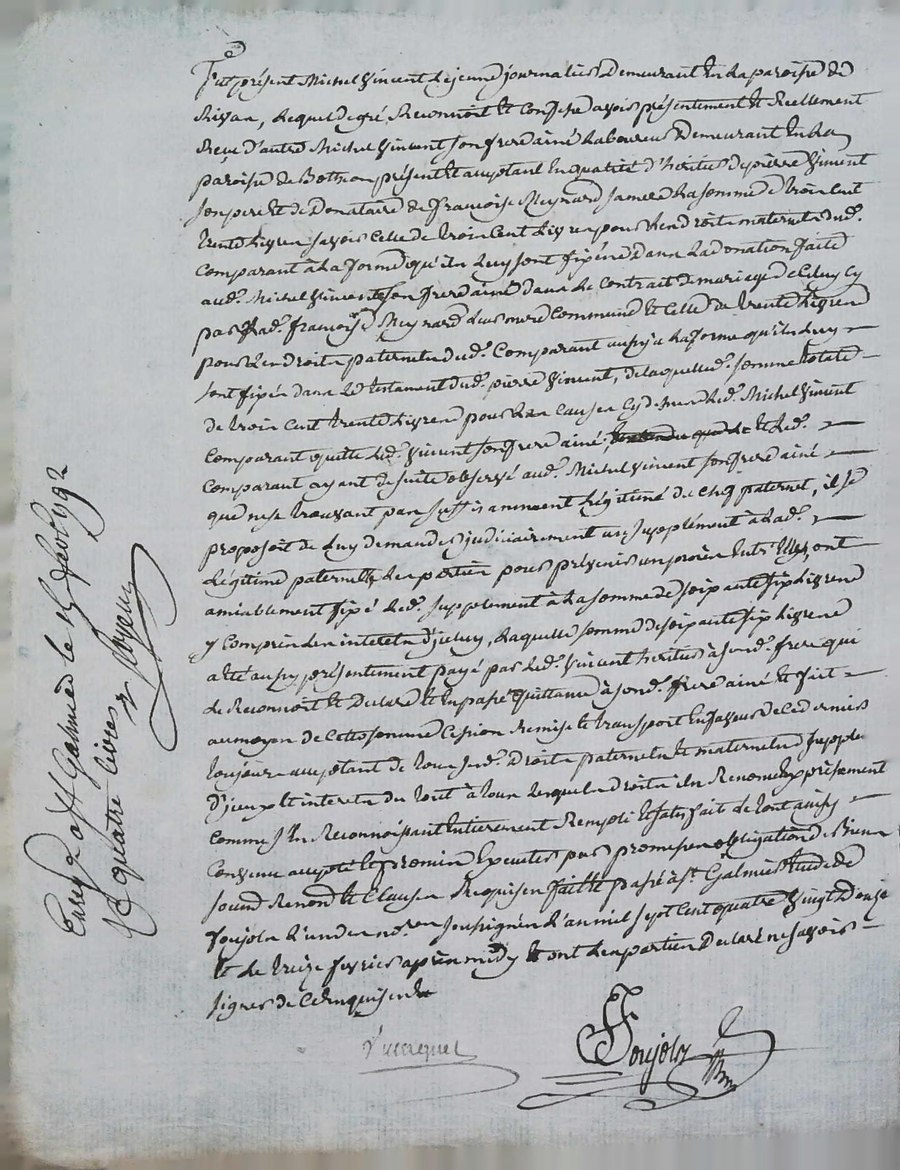 Fut présent Michel Vincent le jeune journalier demeurant en la paroisse de
Rivas, lequel de gré reconnoit et confesse avoir présentement et reellement
reçu d'autre Michel Vincent son frere ainé laboureur demeurant en la
paroisse de Botheon présent et acceptant en qualité d'heritier de pierre Vincent
son pere et de donataire de françoise Meynard sa mere la somme de trois cent
trente livres savoir celle de trois cent livres pour les droits maternels dud.
comparant à la forme qu'ils luy sont fixés dans la donation faite
aud. Michel Vincent son frere ainé dans le contrat de mariage de celuy cy
par lad. françoise Meynard leur mere commune et celle de trente livres
pour les droits paternels dud. comparant aussy a la forme qu'ils luy
sont fixés dans le testament dud. pierre Vincent, de laquelle d. somme totale
de trois cent trente livres pour les causes cy dessus led. Michel Vincent
comparant quitte led. Vincent son frere ainé, et led.
comparant ayant de suite observé aud. Michel Vincent son frere ainé
que ne se trouvant pas suffisamment légitimé du chef paternel, il se
proposoit de luy demander judiciairement un supplément à lad.
légitime paternelle les parties pour prévenir un procès entr'elles, ont
amiablement fixé led. supplement à la somme de soixante six livres
y compris les interets d'iceluy, laquelle somme de soixante six livres
a été aussy présentement payé par led. Vincent heritier à sond. frere qui
le reconnoit et declare et en passe quittance à sond. frere ainé et fait
au moyen de cette somme cession remise et transport en faveur de ce dernier
toujours acceptant de tous sesd. droits paternels et maternels supplement
d'iceux et interets du tout à tous lesquels droits il renonce expressement
comme s'en reconnoissant entierement rempli et satisfait de tout ainsy
convenu accepté et promis executer par promesse obligation de biens
soumd. renond. et clauses requises fait et passé à St. Galmier etude de
Soujols l'un des nores. soussignés l'an mil sept cent quatre vingt douze
et le treize fevrier après midy et ont les parties declaré ne savoir
signer de ce enquises
Soujols
Enregé. a St Galmier le 15 fevr 1792
Rç quatre livres